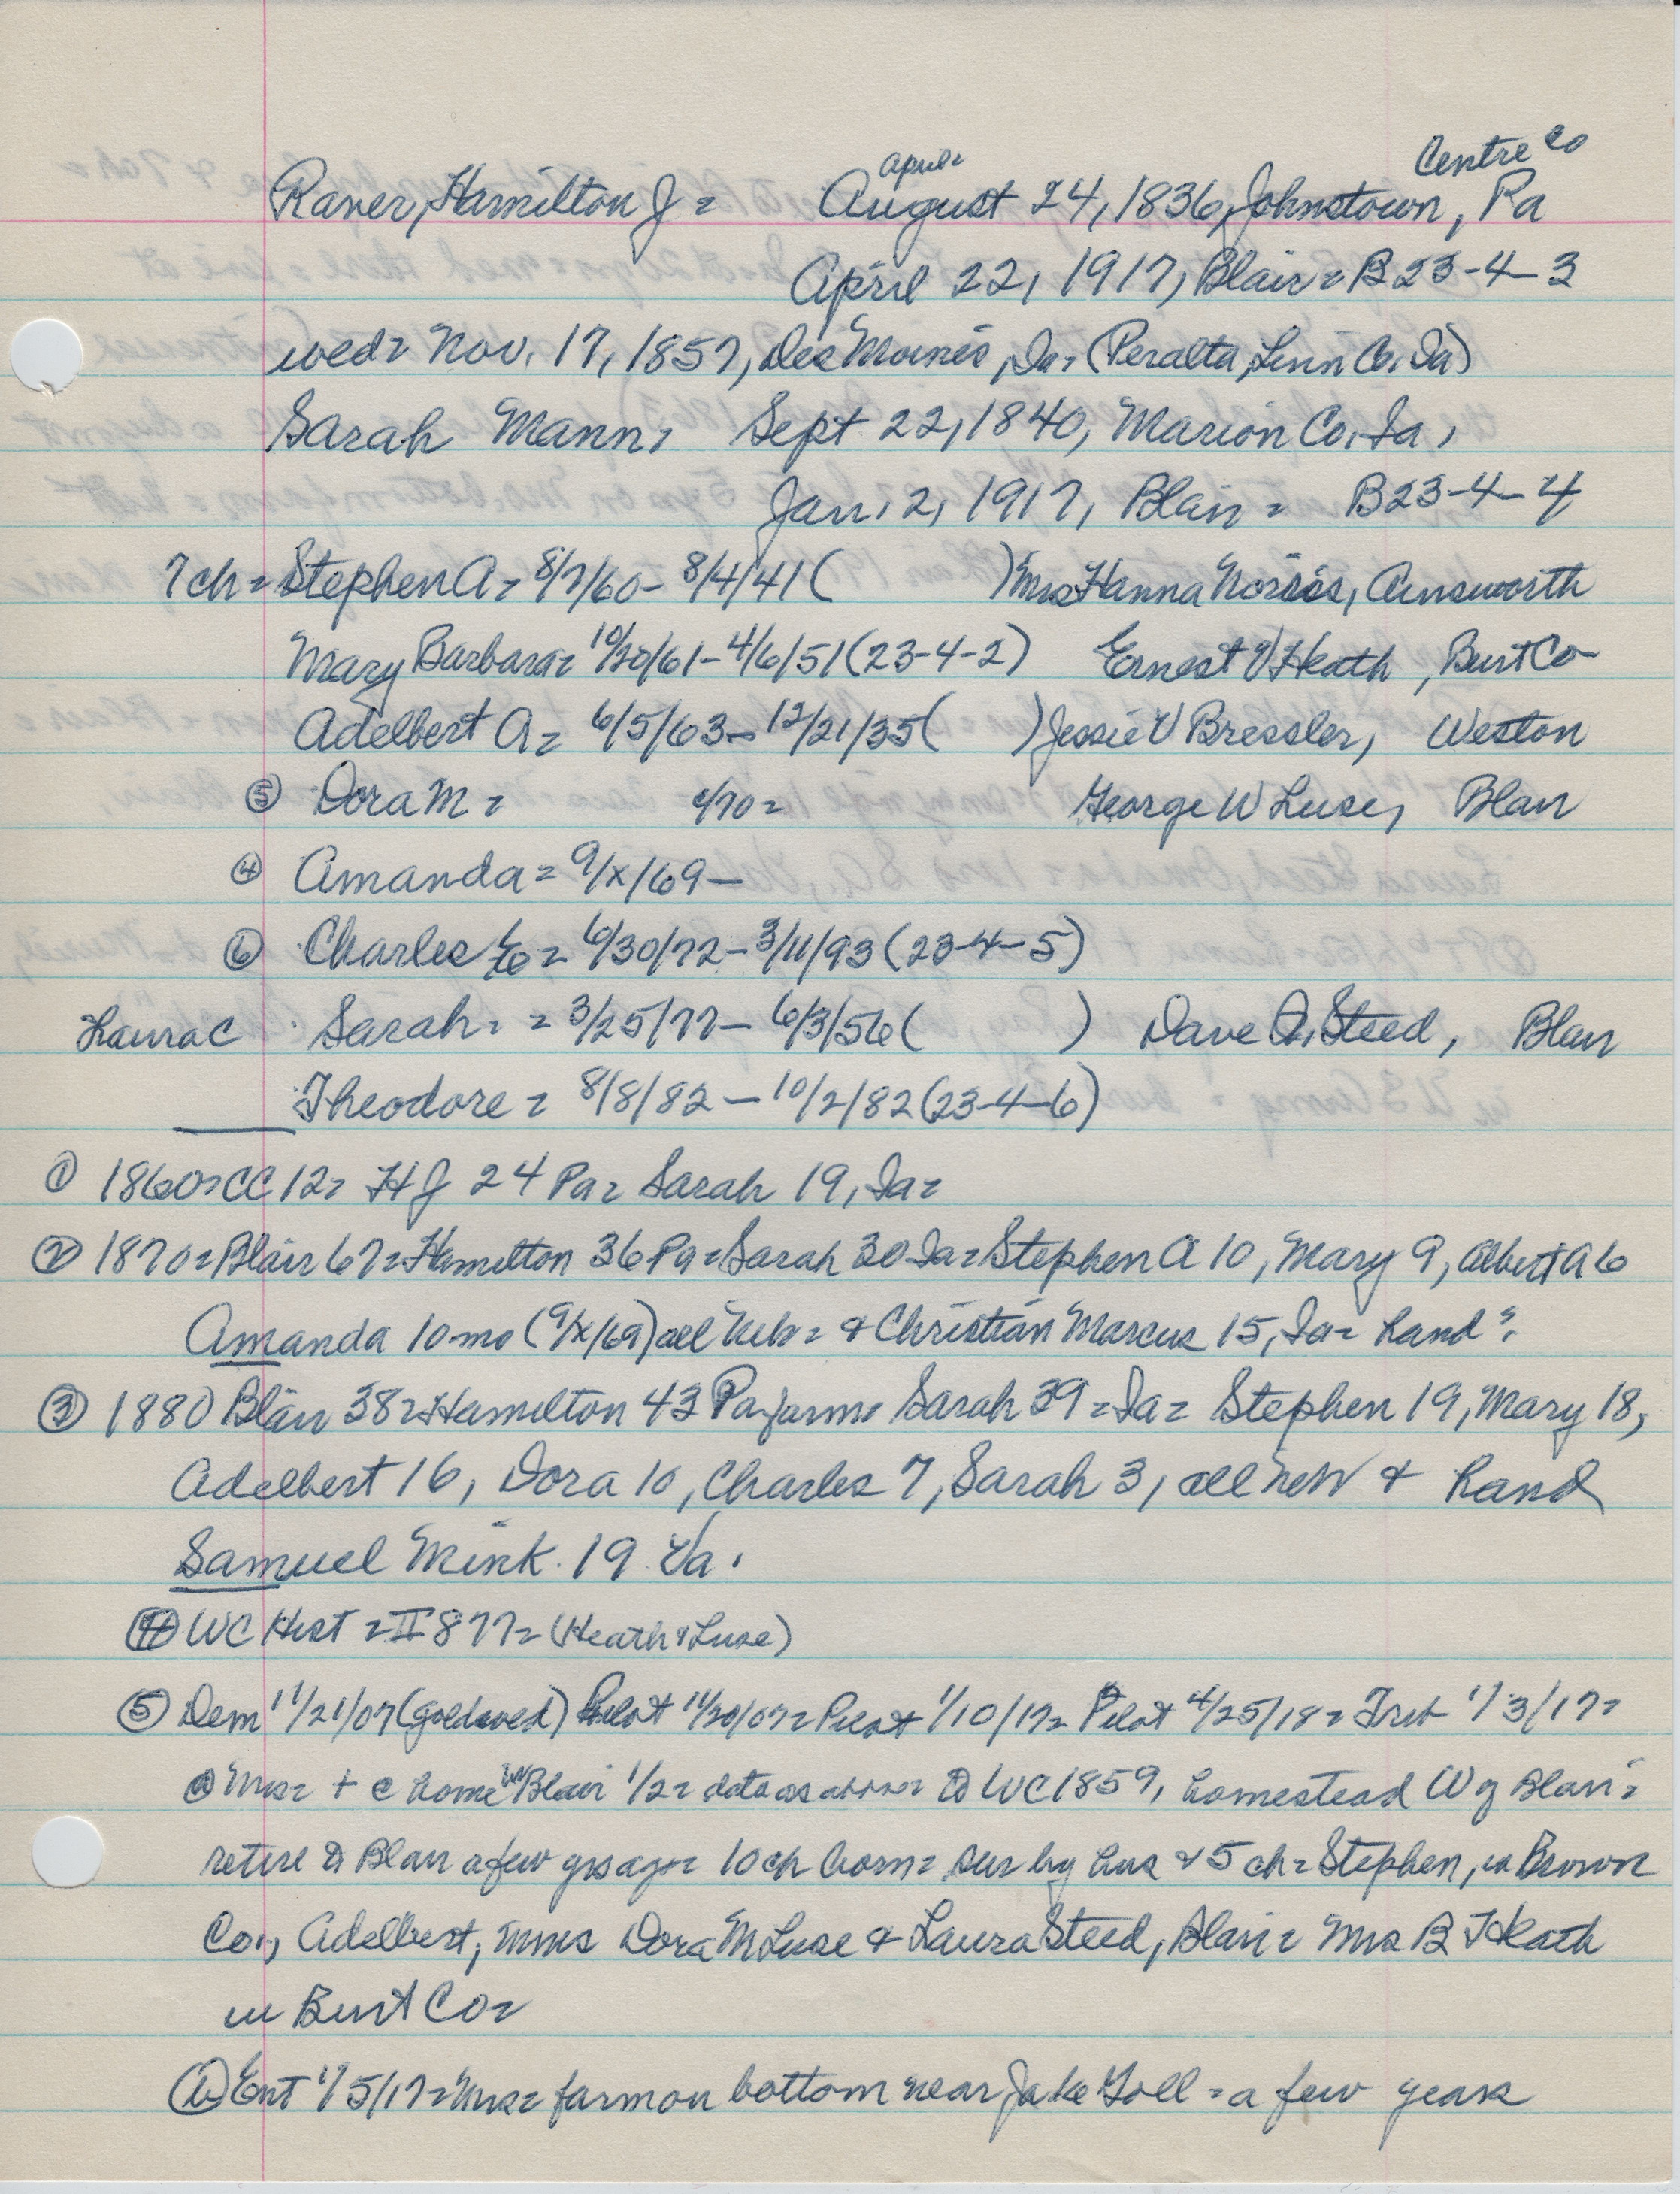 Centre Co
April =
Raver, Hamilton J = August 24, 1836, Johnstown, Pa
April 22, 1917, Blair = B23-4-3
wed = Nov. 17, 1857, Des Moines, Ia = (Peralta, Linn Co, Ia)
Sarah Mann, Sept 22, 1840, Marion Co, Ia,
Jan, 2, 1917, Blair = B23-4-4
7 ch = Stephen A = 8/7/60 - 8/4/41 ( ) Mrs Hanna Norris, Ainsworth
Mary Barbara = 10/20/61 - 4/6/51 (23-4-2) Ernest V Heath, Burt Co -
Adelbert A = 6/5/63 - 12/21/35 ( ) Jessie V Bressler, Weston
⑤ Dora M = c/70 = George W Luse, Blair
④ Amanda = 9/x/69 -
⑥ Charles E = 6/30/72 - 3/11/93 (23-4-5)
Laura C Sarah = 3/25/77 - 6/3/56 ( ) Dave A. Steed, Blair
Theodore = 8/8/82 - 10/2/82 (23-4-6)
① 1860 = CC 12 = H J 24 Pa = Sarah 19, Ia =
② 1870 = Blair 67 = Hamilton 36 Pa = Sarah 30 Ia = Stephen A 10, Mary 9, Albert A 6
Amanda 10 mo (9/x/69) all Neb = & Christian Marcus 15, Ia = hand ?.
③ 1880 Blair 38 = Hamilton 43 Pa farm = Sarah 39 = Ia = Stephen 19, Mary 18,
Adelbert 16, Dora 10, Charles 7, Sarah 3, all Neb & hand
Samuel Mink. 19 Va.
④ WC Hist = II 877 = (Heath & Luse)
⑤ Dem 11/21/07 (gold wed) Pilot 11/20/07 = Pilot 1/10/17 = Pilot 4/25/18 = Trib 1/3/17 =
@ Mrs = + @ home in Blair 1/2 = data as above = to WC 1859, homestead W of Blair =
retire to Blair a few yrs ago = 10 ch born = sur by hus & 5 ch = Stephen, in Brown
Co., Adelbert, Mmes Dora M Luse & Laura Steed, Blair = Mrs B T Heath
in Burt Co =
ⓐ Ent 1/5/17 = Mrs = farm on bottom near Jake Goll = a few years